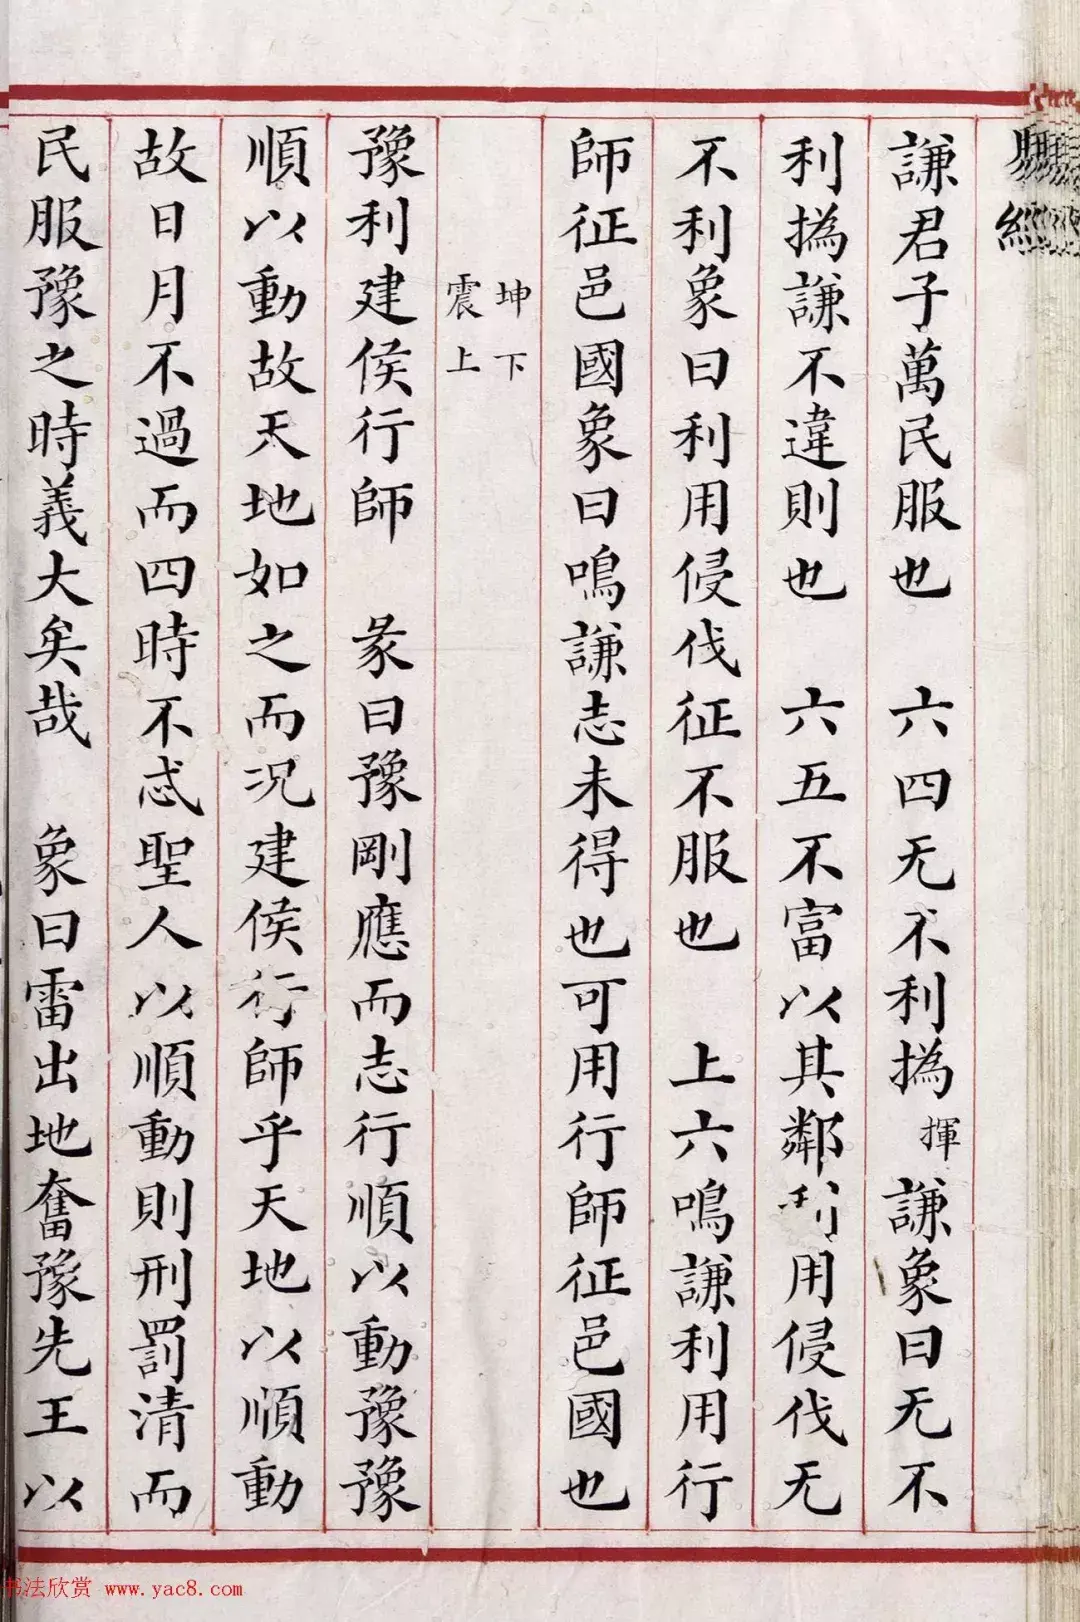 謙君子萬民服也 六四无不利撝揮謙象曰无不
利撝謙不違則也 六五不富以其鄰利用侵伐无
不利象曰利用侵伐征不服也 上六鳴謙利用行
師征邑國象曰鳴謙志未得也可用行師征邑國也
坤下
震上
豫利建侯行師 彖曰豫剛應而志行順以動豫豫
順以動故天地如之而況建侯行師乎天地以順動
故日月不過而四時不忒聖人以順動則刑罰清而
民服豫之時義大矣哉 象曰雷出地奮豫先王以
书法欣赏 www.yac8.com